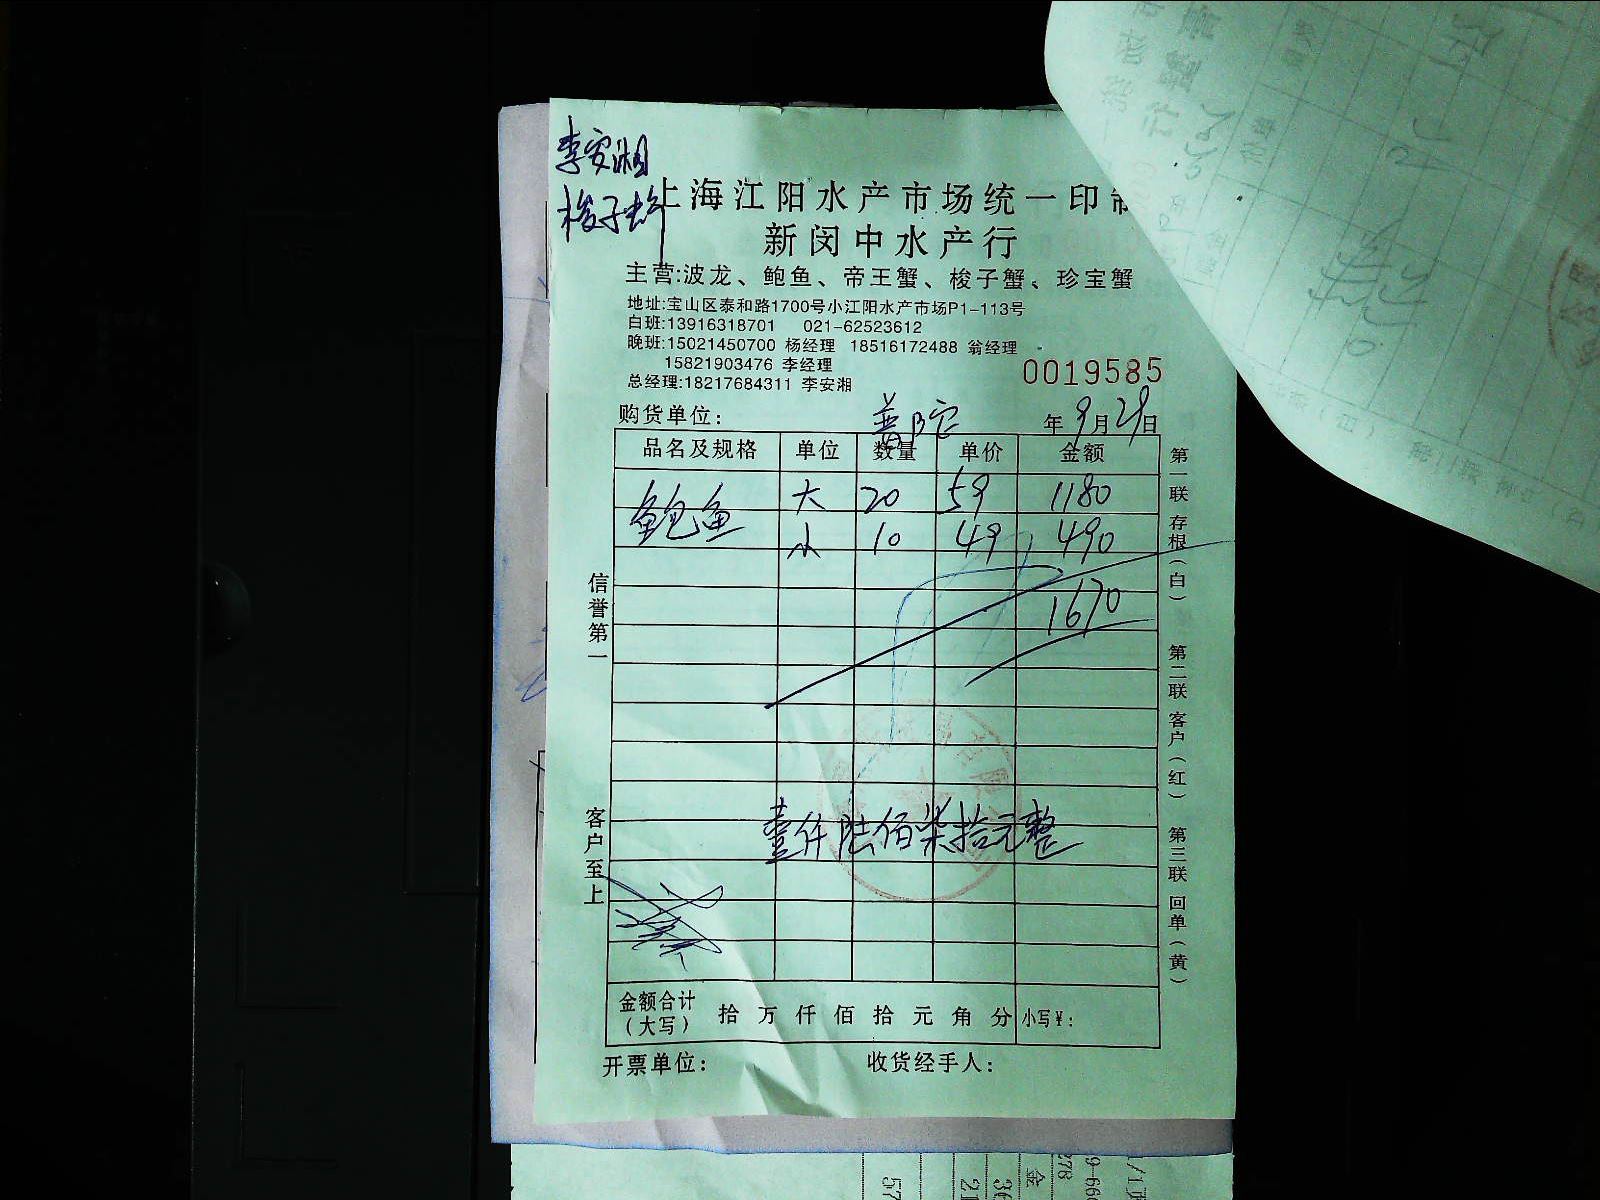 李安湘
梭子蟹
上海江阳水产市场统一印制
新闵中水产行
主营:波龙、鲍鱼、帝王蟹、梭子蟹、珍宝蟹
地址:宝山区泰和路1700号小江阳水产市场P1-113号
白班:13916318701 021-62523612
晚班:15021450700 杨经理 18516172488 翁经理
15821903476 李经理
总经理:18217684311 李安湘
0019585
购货单位: 普陀 年9月29日
品名及规格 单位 数量 单价 金额
鲍鱼 大 20 59 1180
小 10 49 490
1670
壹仟陆佰柒拾元整
金额合计(大写) 拾 万 仟 佰 拾 元 角 分 小写¥:
开票单位: 收货经手人:
信誉第一
客户至上
第一联 存根(白) 第二联 客户(红) 第三联 回单(黄)